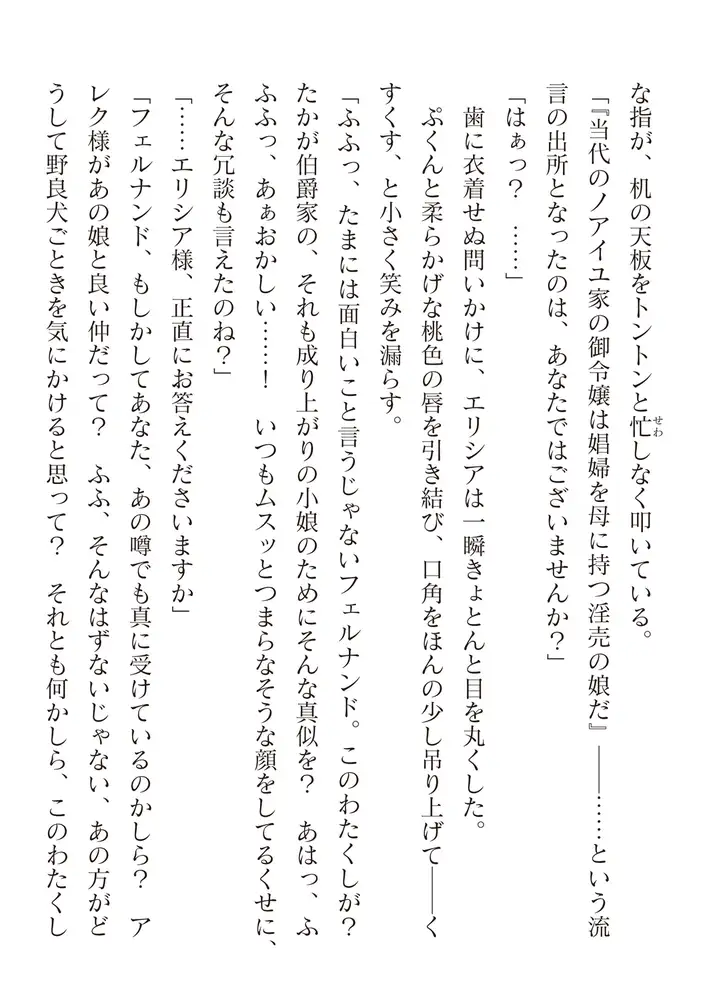 な指が、机の天板をトントンと忙しなく叩いている。
「『当代のノアイユ家の御令嬢は娼婦を母に持つ淫売の娘だ』――……という流
言の出所となったのは、あなたではございませんか？」
「はぁっ？　……」
歯に衣着せぬ問いかけに、エリシアは一瞬きょとんと目を丸くした。
ぷくんと柔らかげな桃色の唇を引き結び、口角をほんの少し吊り上げて――く
すくす、と小さく笑みを漏らす。
「ふふっ、たまには面白いこと言うじゃないフェルナンド。このわたくしが？
たかが伯爵家の、それも成り上がりの小娘のためにそんな真似を？　あはっ、ふ
ふふっ、あぁおかしい……！　いつもムスッとつまらなそうな顔をしてるくせに、
そんな冗談も言えたのね？」
「……エリシア様、正直にお答えくださいますか」
「フェルナンド、もしかしてあなた、あの噂でも真に受けているのかしら？　ア
レク様があの娘と良い仲だって？　ふふ、そんなはずないじゃない、あの方がど
うして野良犬ごときを気にかけると思って？　それとも何かしら、このわたくし